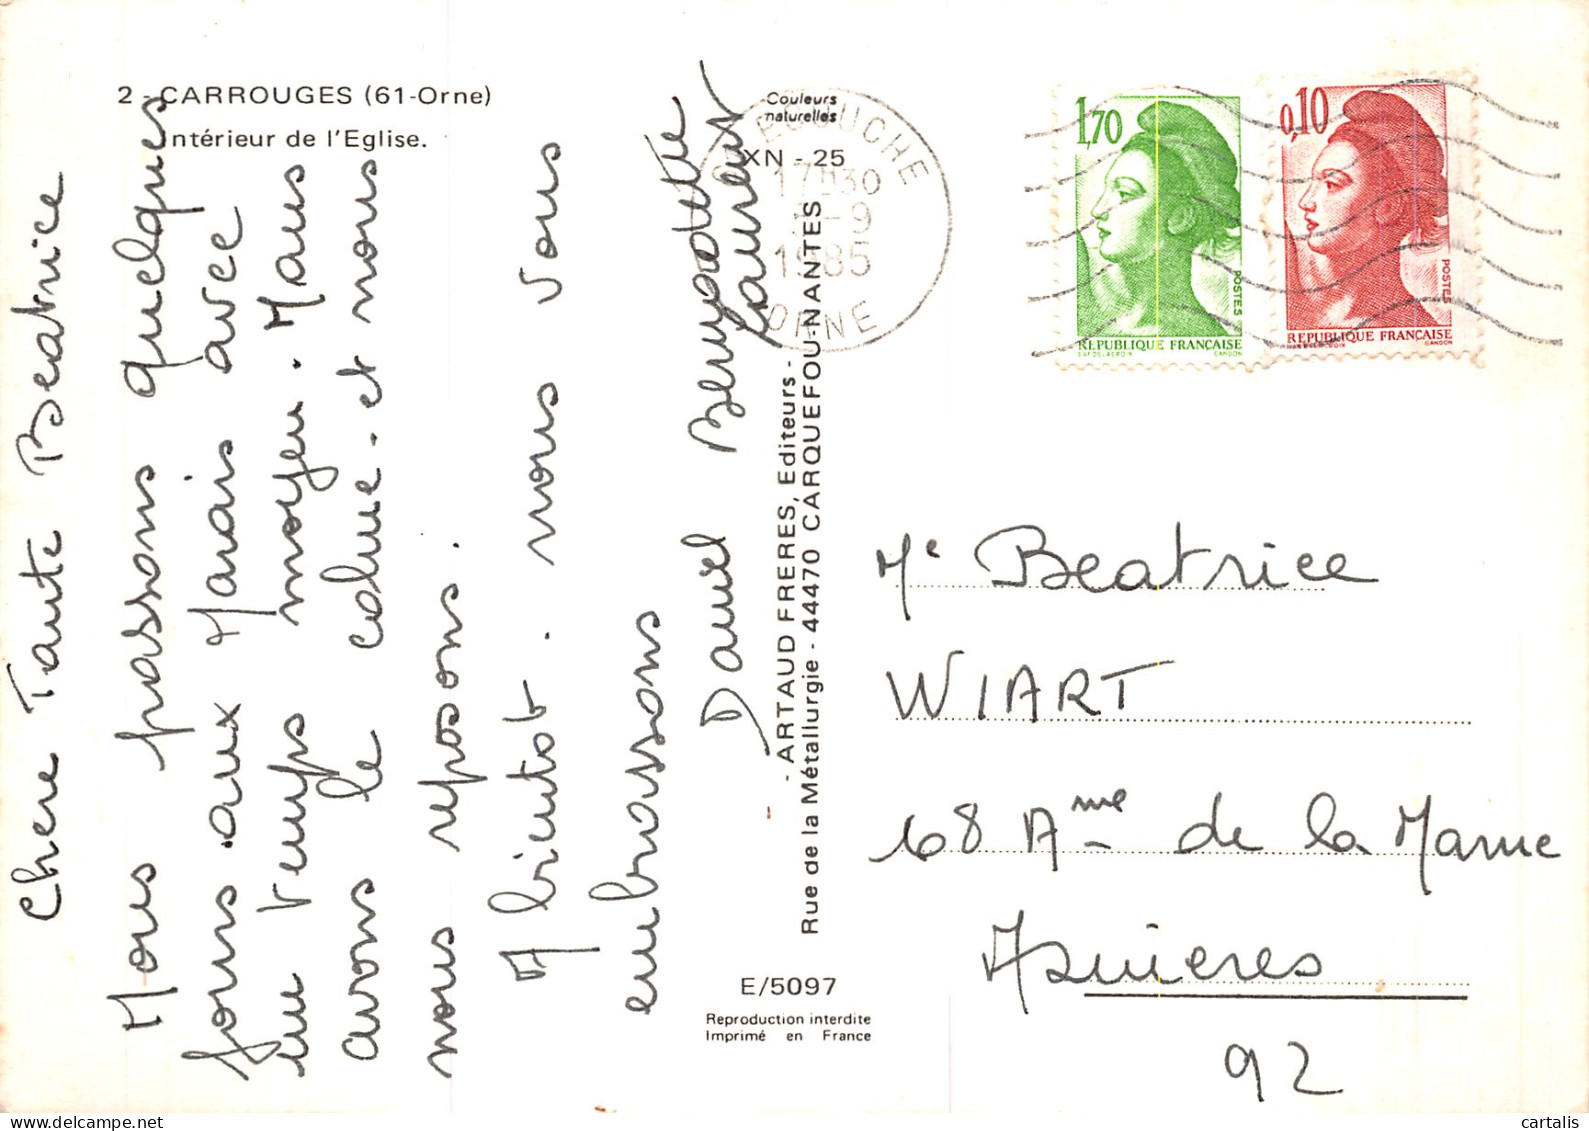 2 - CARROUGES (61-Orne)
Intérieur de l'Eglise.
Couleurs
naturelles
XN - 25
Chere Tante Beatrice
Nous passons quelques
jours aux Marais avec
un temps moyen. Mais
avons le calme. et nous
nous reposons.
A bientot. nous vous
embrassons
Daniel Bernadette
Laurent
- ARTAUD FRERES, Editeurs -
Rue de la Métallurgie - 44470 CARQUEFOU-NANTES
E/5097
Reproduction interdite
Imprimé en France
ECOUCHE
17H30
-9
1985
ORNE
1,70
POSTES
REPUBLIQUE FRANÇAISE
GANDON
0,10
POSTES
REPUBLIQUE FRANÇAISE
GANDON
Me Beatrice
WIART
68 de la Marne
Asnieres
92
cartalis